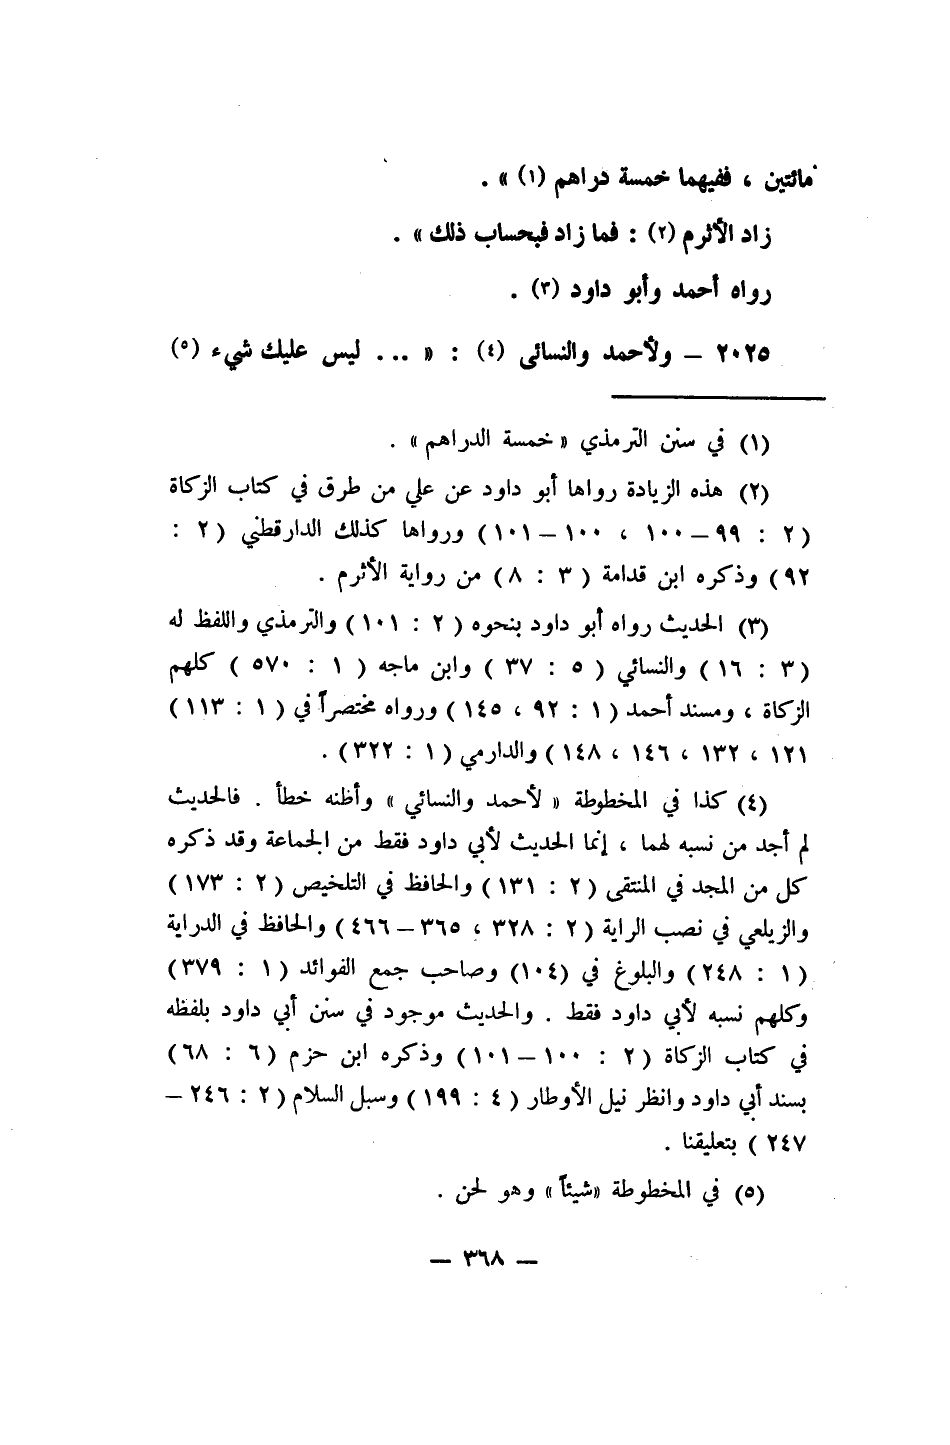 مائتين ، ففيهما خمسة دراهم (١) » .
زاد الأثرم (٢) : فما زاد فبحساب ذلك » .
رواه أحمد وأبو داود (٣) .
٢٠٢٥ – ولأحمد والنسائى (٤) : « ... ليس عليك شيء (٥)
(١) في سنن الترمذي « خمسة الدراهم » .
(٢) هذه الزيادة رواها أبو داود عن علي من طرق في كتاب الزكاة
( ٢ : ٩٩ – ١٠٠ ، ١٠٠ – ١٠١ ) ورواها كذلك الدارقطني ( ٢ :
٩٢ ) وذكره ابن قدامة ( ٣ : ٨ ) من رواية الأثرم .
(٣) الحديث رواه أبو داود بنحوه ( ٢ : ١٠١ ) والترمذي واللفظ له
( ٣ : ١٦ ) والنسائي ( ٥ : ٣٧ ) وابن ماجه ( ١ : ٥٧٠ ) كلهم
الزكاة ، ومسند أحمد ( ١ : ٩٢ ، ١٤٥ ) ورواه مختصراً في ( ١ : ١١٣ )
١٢١ ، ١٣٢ ، ١٤٦ ، ١٤٨ ) والدارمي ( ١ : ٣٢٢ ) .
(٤) كذا في المخطوطة « لأحمد والنسائي » وأظنه خطأ . فالحديث
لم أجد من نسبه لهما ، إنما الحديث لأبي داود فقط من الجماعة وقد ذكره
كل من المجد في المنتقى ( ٢ : ١٣١ ) والحافظ في التلخيص ( ٢ : ١٧٣ )
والزيلعي في نصب الراية ( ٢ : ٣٢٨ ، ٣٦٥ – ٤٦٦ ) والحافظ في الدراية
( ١ : ٢٤٨ ) والبلوغ في (١٠٤) وصاحب جمع الفوائد ( ١ : ٣٧٩ )
وكلهم نسبه لأبي داود فقط . والحديث موجود في سنن أبي داود بلفظه
في كتاب الزكاة ( ٢ : ١٠٠ – ١٠١ ) وذكره ابن حزم ( ٦ : ٦٨ )
بسند أبي داود وانظر نيل الأوطار ( ٤ : ١٩٩ ) وسبل السلام ( ٢ : ٢٤٦ –
٢٤٧ ) بتعليقنا .
(٥) في المخطوطة « شيئاً » وهو لحن .
– ٣٦٨ –